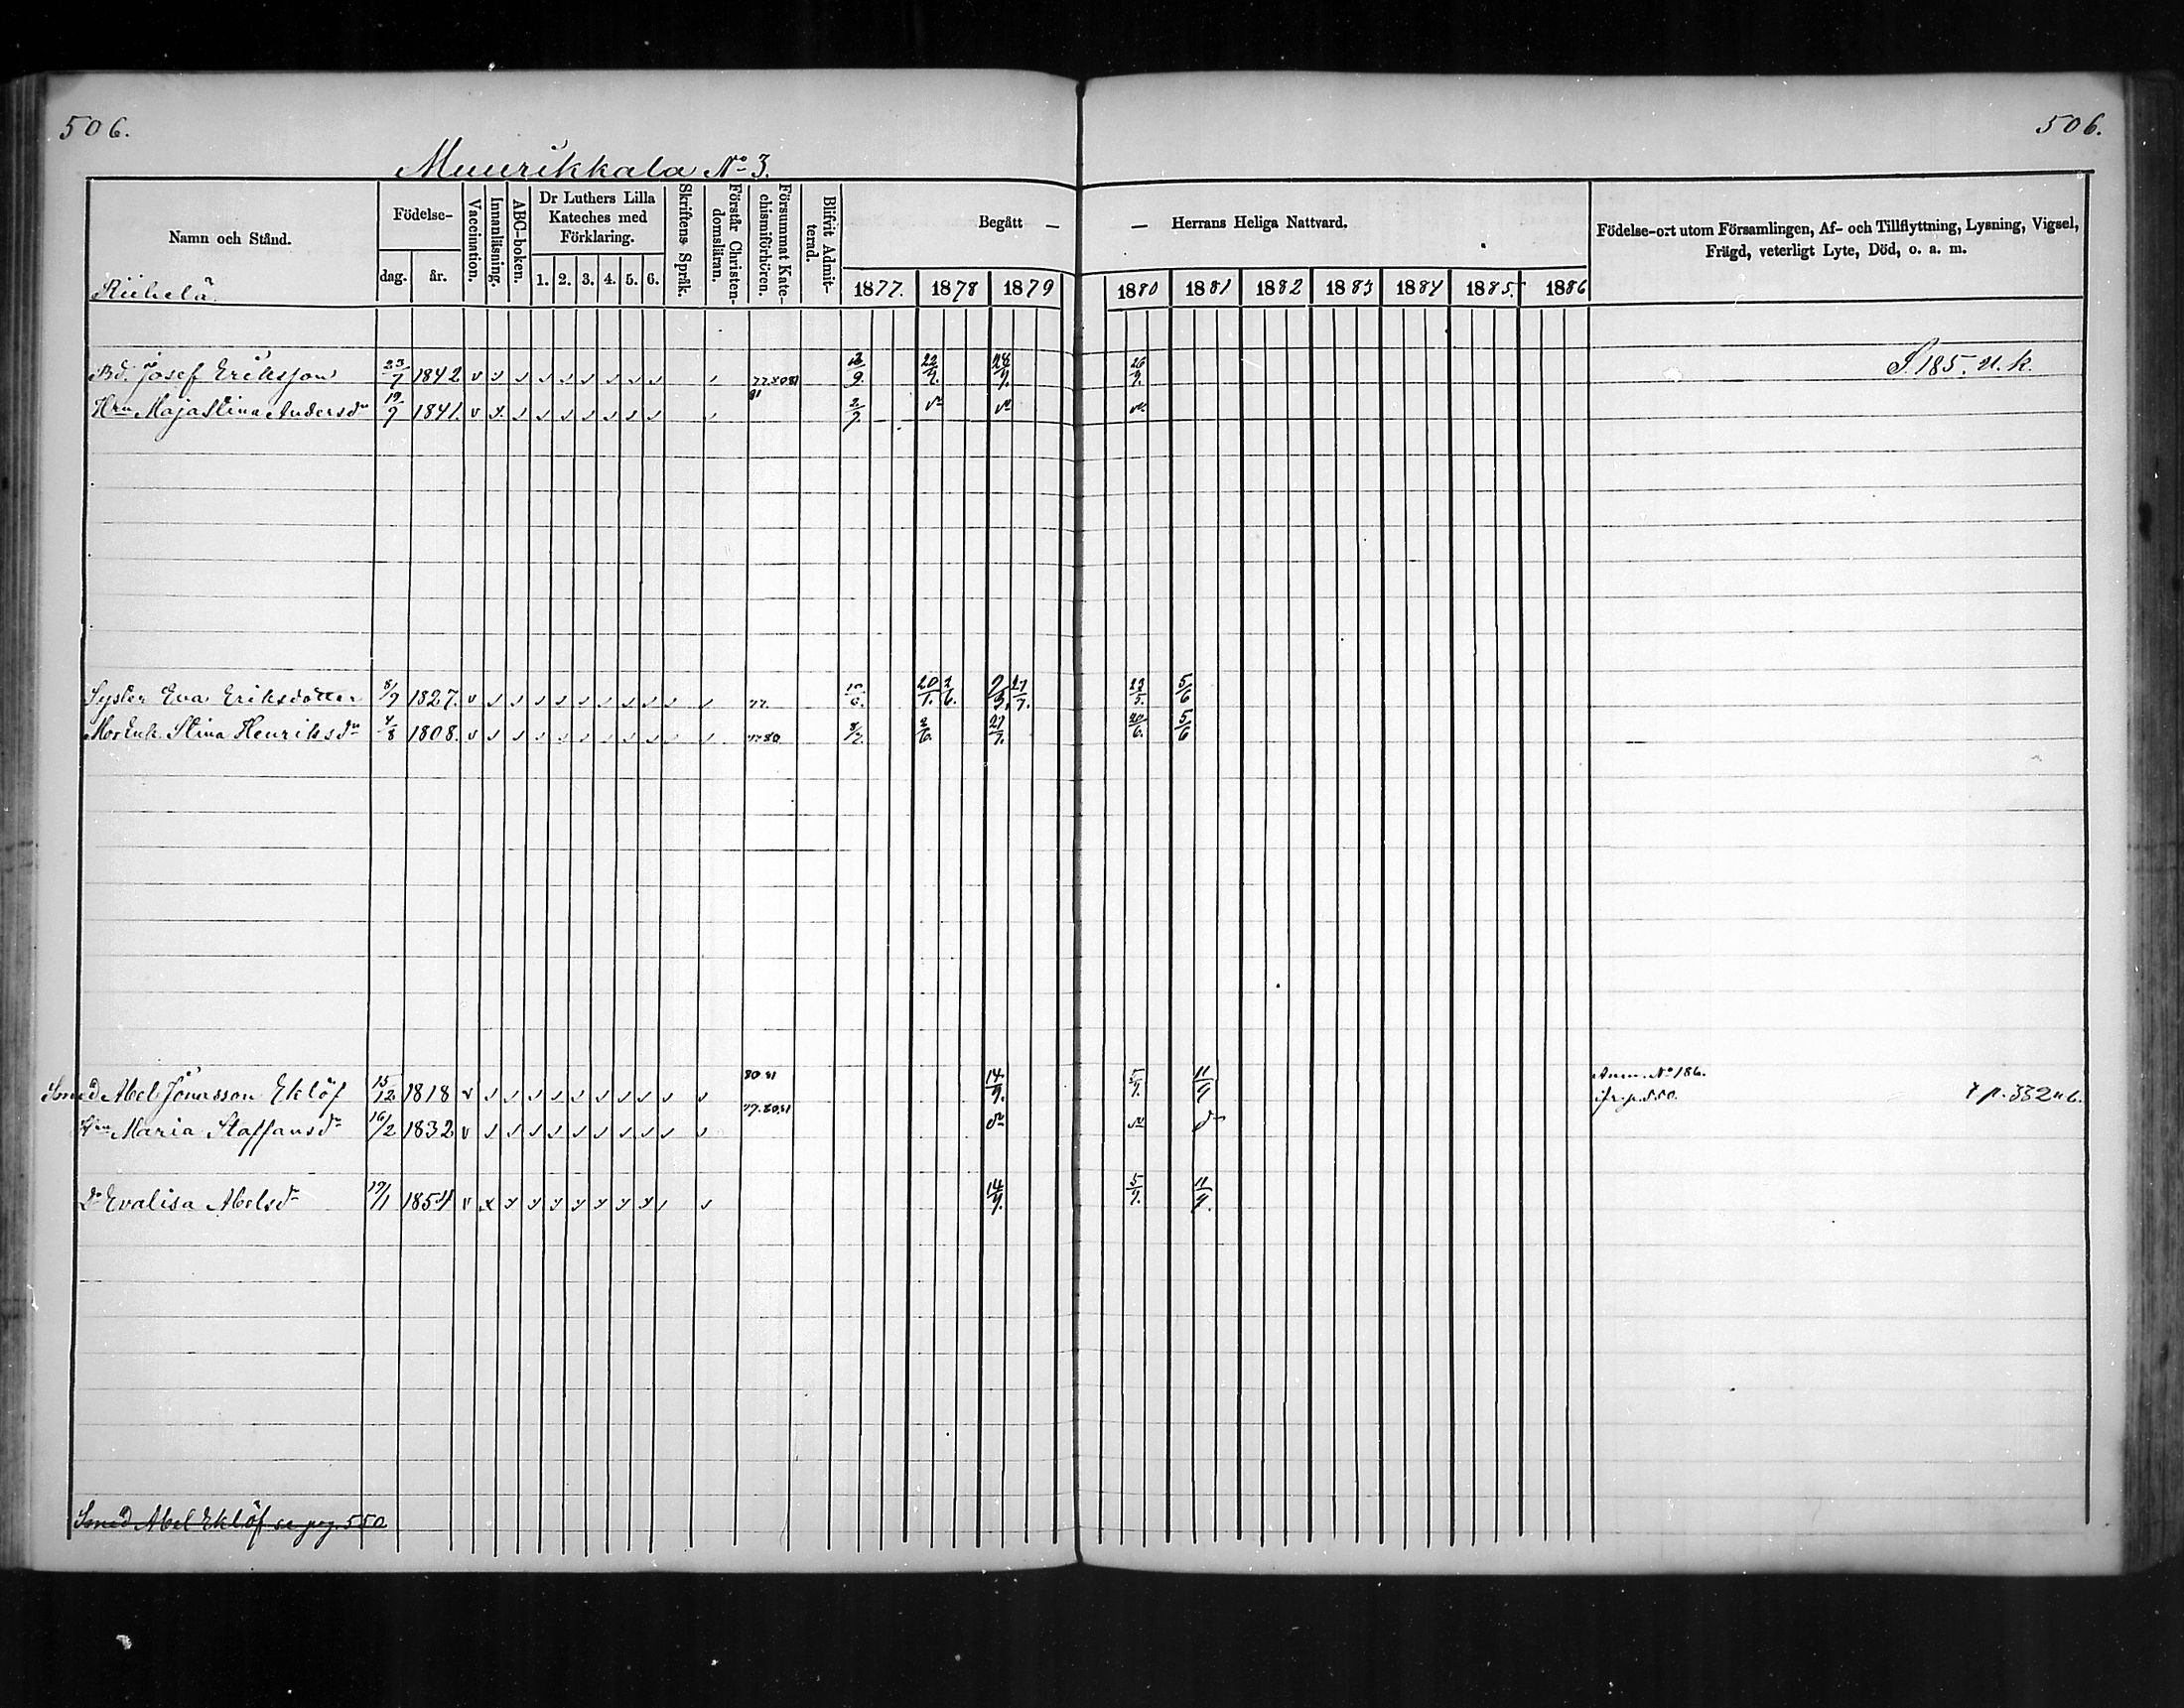 506.
506.
Muurikkala No 3.
Namn och Stånd.
Födelse-
dag.
år.
Vaccination.
Innanläsning.
ABC-boken.
Dr Luthers Lilla Kateches med Förklaring.
1. 2. 3. 4. 5. 6.
Skriftens Språk.
Förstår Christen-domsläran.
Försummat Kate-chismiförhören.
Blifvit Admit-terad.
Begått —
— Herrans Heliga Nattvard.
1877. 1878 1879 1880 1881 1882 1883 1884 1885. 1886
Födelse-ort utom Församlingen, Af- och Tillflyttning, Lysning, Vigsel, Frägd, veterligt Lyte, Död, o. a. m.
Riihelä.
Bd. Josef Eriksson 23/7 1842 v 22/9. S. 185. n. k.
Hru Maja Stina Andersdr 19/9 1841. v
Syster Eva Eriksdotter 8/9 1827. v 77. 20/1. 2/6. 9/3. 27/7. 23/5. 5/6
Mor Enk. Stina Henriksdr 4/8 1808. v 77 80 2/6. 27/7. 20/6. 5/6
Smed Abel Jönasson Eklöf 15/12 1818 v 80.81 14/9. 5/9. 11/9 Anm. No 186. fr. p. 550. t p. 332 n 6.
Hru Maria Staffansdr 16/2 1832 v 77.80.81
Dr Evalisa Abelsdr 19/1 1854 v 14/9. 5/9. 11/9.
Smed Abel Eklöf se pag. 550